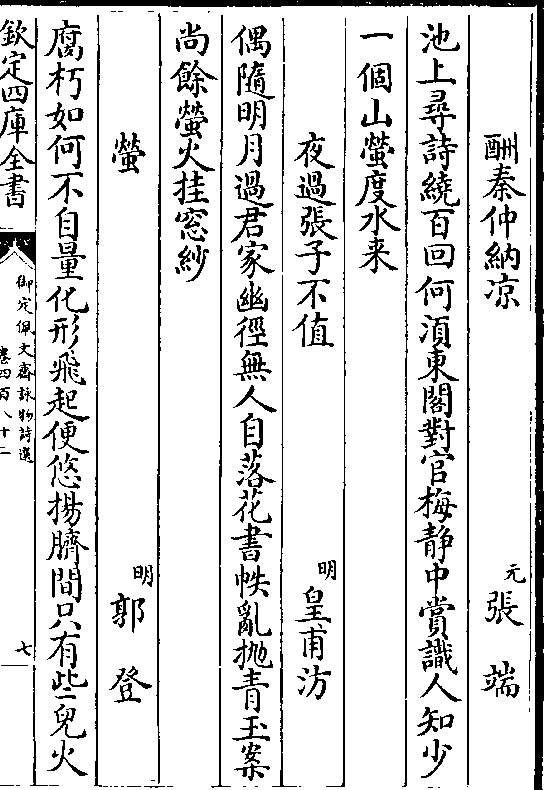 酬秦仲納凉　元 張 端
池上尋詩繞百回何湏東閣對官梅靜中賞識人知少
一個山螢度水来
夜過張子不值　明 皇甫汸
偶隨明月過君家幽徑無人自落花書帙亂抛青玉案
尚餘螢火挂窓紗
螢　明 郭 登
腐朽如何不自量化形飛起便悠揚臍間只有些兒火
欽定四庫全書
御定佩文齋詠物詩選
卷四百八十二
七